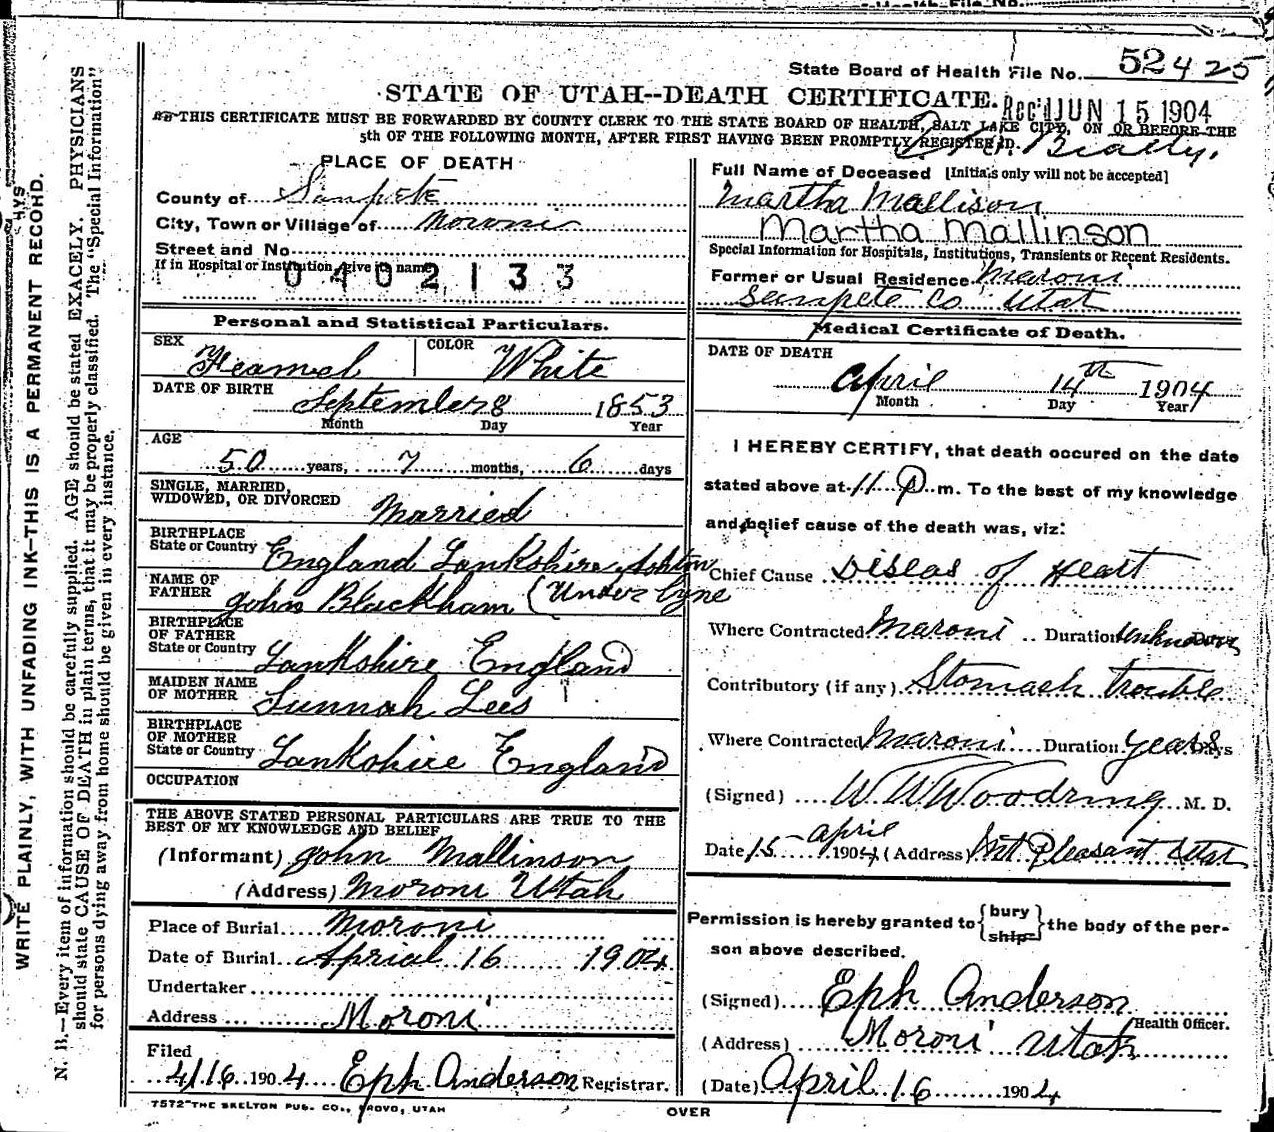 Health File No.
State Board of Health File No. 52425
STATE OF UTAH--DEATH CERTIFICATE.
Rec'd JUN 15 1904
THIS CERTIFICATE MUST BE FORWARDED BY COUNTY CLERK TO THE STATE BOARD OF HEALTH, SALT LAKE CITY, ON OR BEFORE THE
5th OF THE FOLLOWING MONTH, AFTER FIRST HAVING BEEN PROMPTLY REGISTERED.
PLACE OF DEATH
County of Sanpete
City, Town or Village of Moroni
Street and No.
If in Hospital or Institution, give its name
0402133
Full Name of Deceased [Initials only will not be accepted]
Martha Mallison
Martha Mallinson
Special Information for Hospitals, Institutions, Transients or Recent Residents.
Former or Usual Residence Maroni
Sanpete Co Utah
Personal and Statistical Particulars.
SEX Feamel COLOR White
DATE OF BIRTH
September 8 1853
Month Day Year
AGE
50 years, 7 months, 6 days
SINGLE, MARRIED,
WIDOWED, OR DIVORCED Married
BIRTHPLACE
State or Country England Lankshire Ashton
NAME OF
FATHER John Blackham (Under Lyne
BIRTHPLACE
OF FATHER
State or Country Lankshire England
MAIDEN NAME
OF MOTHER Sunnah Lees
BIRTHPLACE
OF MOTHER
State or Country Lankshire England
OCCUPATION
THE ABOVE STATED PERSONAL PARTICULARS ARE TRUE TO THE
BEST OF MY KNOWLEDGE AND BELIEF
(Informant) John Mallinson
(Address) Moroni Utah
Place of Burial Moroni
Date of Burial Aprial 16 1904
Undertaker
Address Moroni
Filed
4/16 1904 Eph Anderson Registrar.
7572-THE SKELTON PUB. CO., PROVO, UTAH
Medical Certificate of Death.
DATE OF DEATH
April 14th 1904
Month Day Year
I HEREBY CERTIFY, that death occured on the date
stated above at 11 P m. To the best of my knowledge
and belief cause of the death was, viz:
Chief Cause Diseas of Heart
Where Contracted Maroni Duration Unknown
Contributory (if any) Stomach trouble
Where Contracted Maroni Duration years Days
(Signed) W. W Woodring M. D.
Date 15 April 1904 (Address) Mt Pleasant Utah
Permission is hereby granted to {bury ship} the body of the per-
son above described.
(Signed) Eph Anderson
Health Officer.
(Address) Moroni Utah
(Date) April 16 1904
OVER
WRITE PLAINLY, WITH UNFADING INK-THIS IS A PERMANENT RECORD.
N. B.-Every item of information should be carefully supplied. AGE should be stated EXACELY. PHYSICIANS
should state CAUSE OF DEATH in plain terms, that it may be properly classified. The "Special Information"
for persons dying away from home should be given in every instance.